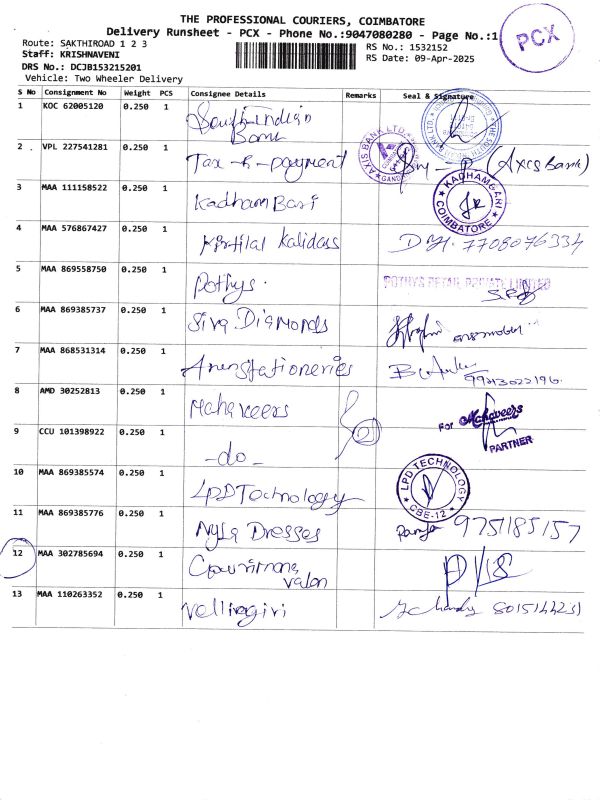 THE PROFESSIONAL COURIERS, COIMBATORE
Delivery Runsheet - PCX - Phone No.:9047080280 - Page No.:1
PCX
Route: SAKTHIROAD 1 2 3
RS No.: 1532152
Staff: KRISHNAVENI
RS Date: 09-Apr-2025
DRS No.: DCJB153215201
Vehicle: Two Wheeler Delivery
S No Consignment No Weight PCS Consignee Details Remarks Seal & Signature
1 KOC 62005120 0.250 1 South Indian
Bank
2 VPL 227541281 0.250 1 Tax-h-payment (Axis Bank)
AXIS BANK LTD.
3 MAA 111158522 0.250 1 Kadham Bari
KADHAMGARI
COIMBATORE
4 MAA 576867427 0.250 1 Kirtilal Kalidass 7708076334
5 MAA 869558750 0.250 1 Pothys. POTHYS RETAIL PRIVATE LIMITED
6 MAA 869385737 0.250 1 Siva Diamonds
7 MAA 868531314 0.250 1 Arunstationeries
8 AMD 30252813 0.250 1 Mahaveers
For Mahaveers
PARTNER
9 CCU 101398922 0.250 1 -do-
10 MAA 869385574 0.250 1 LPD Technology
LPD TECHNOLOGY
CBE-12
11 MAA 869385776 0.250 1 Nyla Dresses 9751185157
12 MAA 302785694 0.250 1
13 MAA 110263352 0.250 1 Velliregiri 8015144231